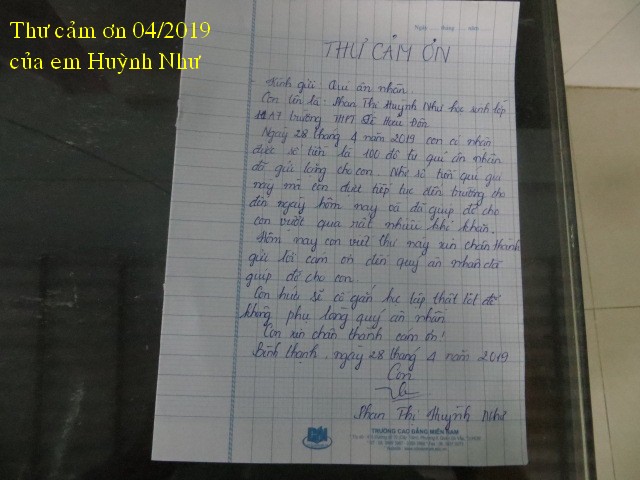 Thư cảm ơn 04/2019
của em Huỳnh Như
Ngày tháng năm
THƯ CẢM ƠN
Kính gửi Quí ân nhân
Con tên là: Phan Thị Huỳnh Như học sinh lớp
12A7 trường THPT
Ngày 28 tháng 4 năm 2019 con có nhận
được số tiền là 100 đô từ quí ân nhân
đã gửi tặng cho con. Nhờ số tiền quí giá
này mà con được tiếp tục đến trường cho
đến ngày hôm nay và đã giúp đỡ cho
con vượt qua rất nhiều khó khăn.
Hôm nay con viết thư này xin chân thành
gửi lời cảm ơn đến quý ân nhân đã
giúp đỡ cho con.
Con hứa sẽ cố gắn học tập thật tốt để
không phụ lòng quý ân nhân
Con xin chân thành cảm ơn!
Bình Thạnh, ngày 28 tháng 4 năm 2019
Con
Phan Thị Huỳnh Như
TRƯỜNG CAO ĐẲNG MIỀN NAM